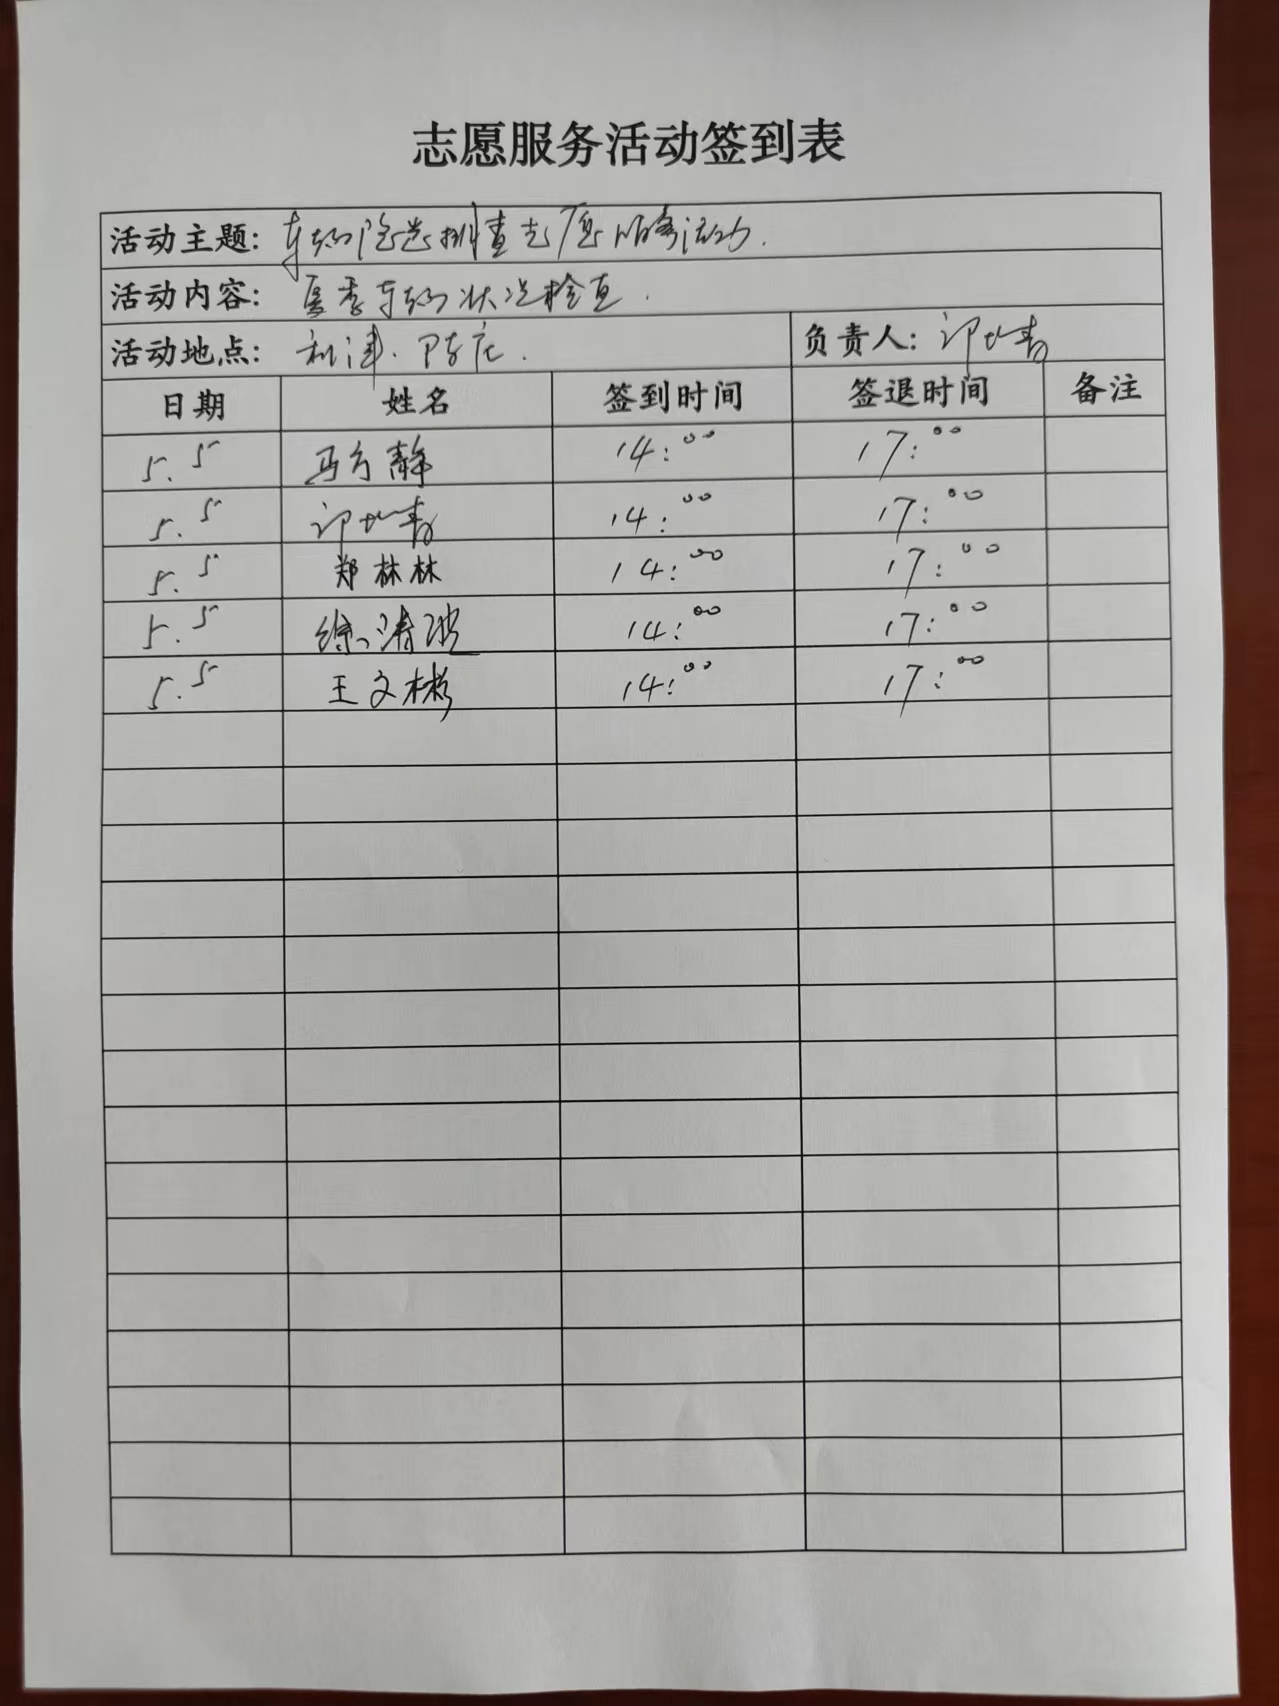 志愿服务活动签到表
活动主题: 车辆隐患排查志愿服务活动.
活动内容: 夏季车辆状况检查.
活动地点: 利津. 陈庄. 负责人:
日期 姓名 签到时间 签退时间 备注
5.5 马方静 14:00 17:00
5.5 14:00 17:00
5.5 郑林林 14:00 17:00
5.5 徐清波 14:00 17:00
5.5 王文彬 14:00 17:00